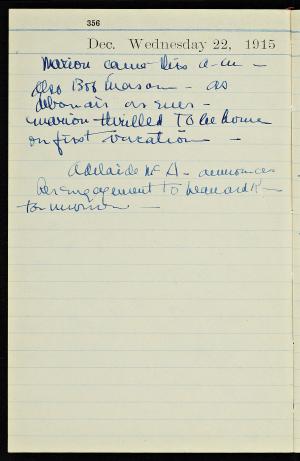 356
Dec. Wednesday 22, 1915
Marion came this a-m –
Also Bob Mason – as
debonair as ever –
Marion thrilled to be home
on first vacation –
Adelaide Mc A – announces
her engagement to Leonard K –
tomorrow –